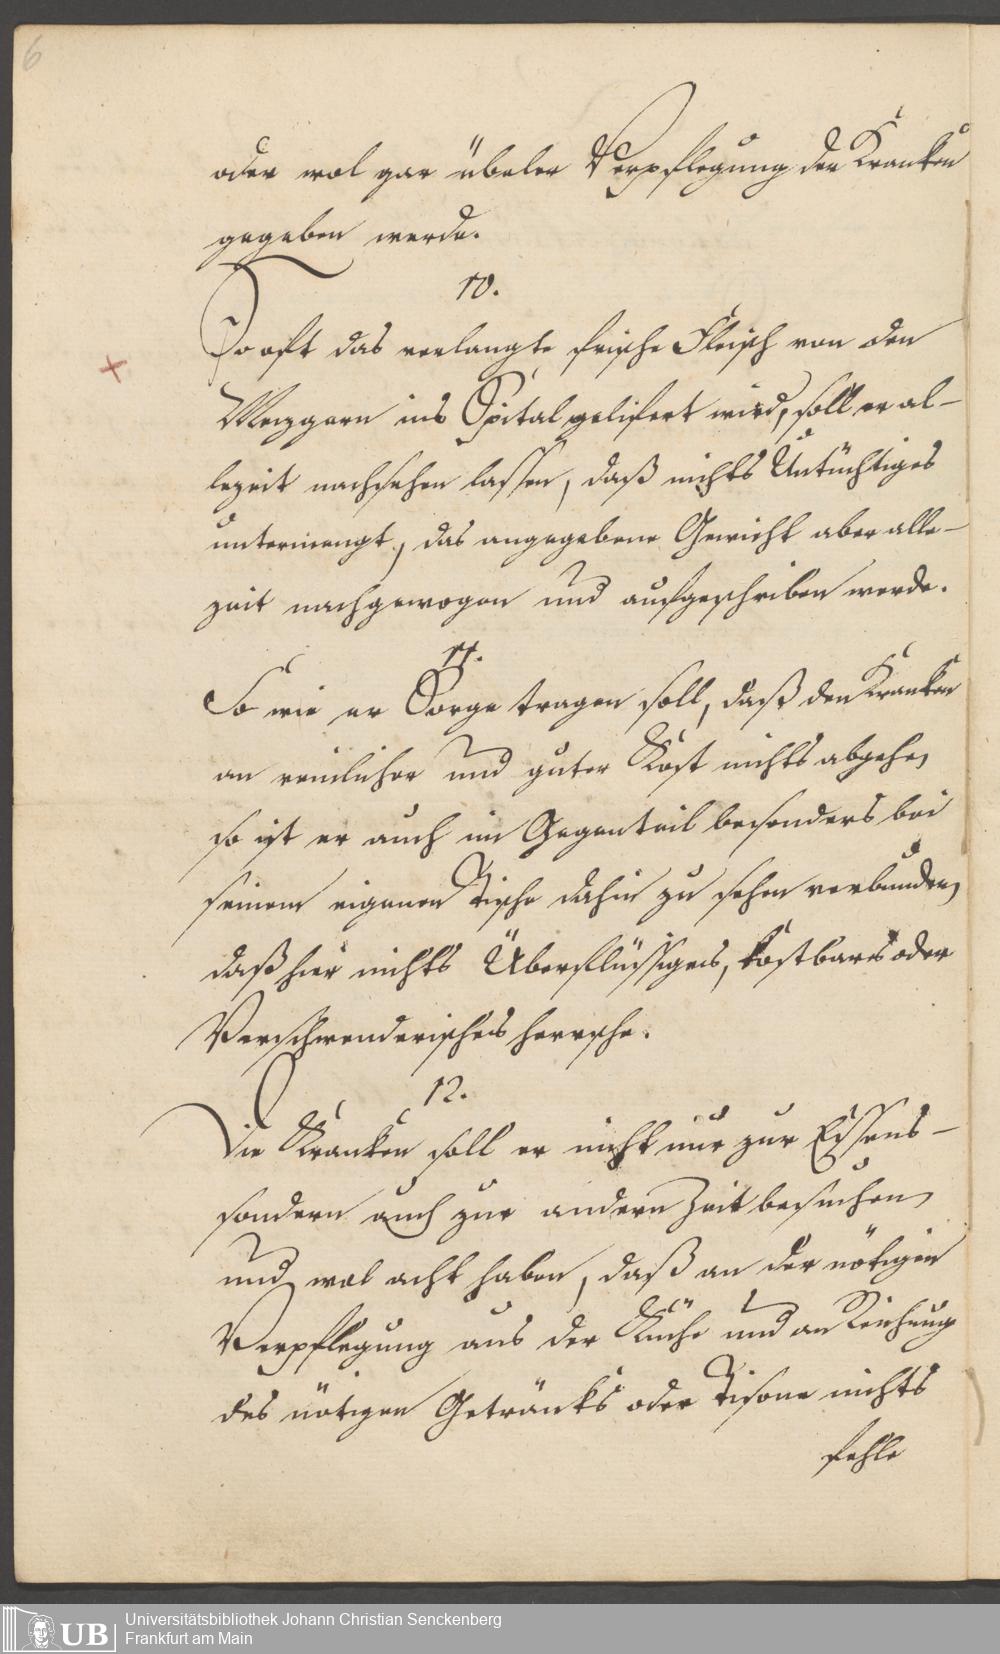 6
oder wol gar übeler Verpflegung der Kranken
gegeben werde.
10.
So oft das verlangte frische Fleisch von den
Mezgern ins Spital gelifert wird, soll er al-
lezeit nachsehen lassen, daß nichts Untüchtiges
untermengt, das angegebene Gewicht aber alle-
zeit nachgewogen und aufgeschriben werde.
11.
So wie er Sorge tragen soll, daß den Kranken
an reinlicher und guter Kost nichts abgehe,
so ist er auch im Gegenteil besonders bei
seinem eigenen Tische dahin zu sehen verbunden,
daß hier nichts Überflüssiges, kostbares oder
Verschwenderisches herrsche.
12.
Die Kranken soll er nicht nur zur Essens-
sondern auch zur andern Zeit besuchen,
und wol acht haben, daß an der nötigen
Verpflegung aus der Küche und an Reichung
des nötigen Getränks oder Tisane nichts
fehle
UB
Universitätsbibliothek Johann Christian Senckenberg
Frankfurt am Main